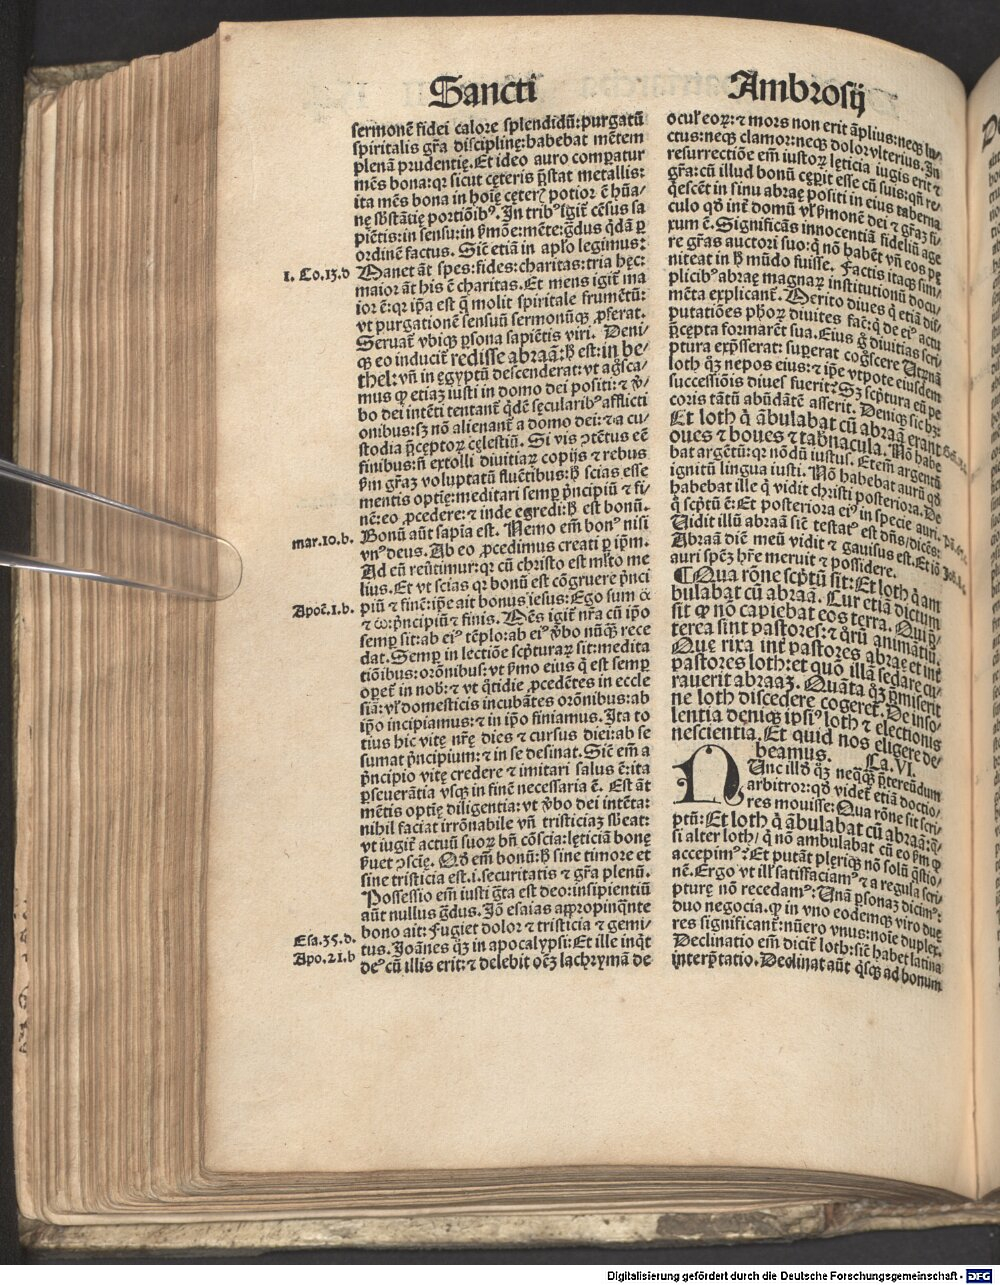 Sancti Ambrosij
sermonē fidei calore splendidū: purgatū
spiritalis gr̄a discipline: habebat mētem
plenā prudentię. Et ideo auro comparatur
mēs bona: qr sicut cęteris p̄stat metallis:
ita mēs bona in hoīe cęterꝭ potior ē hūa/
nę sb̄stātię portiōibꝰ. In tribꝰ igit̄ cēsus sa
piētis: in sensu: in ꝓmōe: mēte: gͣdus qͣdā ꝑ
ordinē factus. Sic̄ etiā in apl̄o legimus:
1. Co.13.d Manet āt spes: fides: charitas: tria hęc:
maior āt his ē charitas. Et mens igit̄ ma
ior ē: qr ip̄a est q̄ molit spiritale frumētū:
vt purgationē sensuū sermonūqꝫ ꝓferat.
Seruat̄ vbiqꝫ ꝑsona sapiētis viri. Deni/
qꝫ eo inducit̄ redisse abraā: hͦ est: in be/
thel: vn̄ in ęgyptū descenderat: vt agͦsca/
mus ꝙ etiaꝫ iusti in domo dei positi: ⁊ v̓/
bo dei intēti tentant̄ qͥdē sęcularibꝰ afflicti
onibus: sꝫ nō alienant̄ a domo dei: ⁊ a cu/
stodia p̄ceptoꝝ cęlestiū. Si vis ↄtētus eē
finibus: n̄ extolli diuitiaꝝ copijs ⁊ rebus
ẜm gr̄aꝫ voluptatū fluētibus: hͦ scias esse
mentis optię: meditari semꝑ pͥncipiū ⁊ fi/
nē: eo ꝓcedere: ⁊ inde egredi: hͦ est bonū.
mar.10.b. Bonū aūt sapia est. Nemo em̄ bonꝰ nisi
vnꝰ deus. Ab eo ꝓcedimus creati ꝑ ip̄m.
Ad eū reūtimur: qr cū christo est mltͦ me
lius. Et vt scias qr bonū est cōgruere pͥnci
Apoč.1.b. piū ⁊ finē: ip̄e ait bonus iesus: Ego sum α
⁊ ω: pͥncipiū ⁊ finis. Mēs igit̄ nr̄a cū ip̄o
semꝑ sit: ab eiꝰ tēplo: ab eiꝰ v̓bo nūqͣꝫ rece
dat. Semꝑ in lectiōe scpͥturaꝝ sit: medita
tiōibus: orōnibus: vt ꝓmo eius q̄ est semꝑ
oꝑet̄ in nob̄: ⁊ vt qͦtidie ꝓcedētes in eccle
siā: vl̓ domesticis incubātes orōnibus: ab
ip̄o incipiamus: ⁊ in ip̄o finiamus. Ita to
tius hic vitę nr̄ę dies ⁊ cursus diei: ab se
sumat pͥncipium: ⁊ in se desinat. Sic̄ em̄ a
pͥncipio vitę credere ⁊ imitari salus ē: ita
ꝑseuerātia vsqꝫ in finē necessaria ē. Est āt
mētis optię diligentia: vt v̓bo dei intēta:
nihil faciat irrōnabile vn̄ tristiciaꝫ sbͤat:
vt iugit̄ actuū suoꝝ bn̄ cōscia: lęticiā bonę
ẜuet ↄscię. Qd̄ em̄ bonū: hͦ sine timore et
sine tristicia est. i. securitatis ⁊ gr̄a plenū.
Possessio em̄ iusti gͣta est deo: insipientiū
aūt nullus gͣdus. Iō esaias appropinqͣnte
Esa.35.d. bono ait: Fugiet dolor ⁊ tristicia ⁊ gemi/
Apo.21.b tus. Ioānes qͦꝫ in apocalypsi: Et ille inqͥt
deꝰ cū illis erit: ⁊ delebit oēꝫ lachrymā de
ocul̓ eoꝝ: ⁊ mors non erit āplius: neqꝫ lu/
ctus: neqꝫ clamor: neqꝫ dolor vlterius. In
resurrectiōe em̄ iustoꝝ lęticia iugis erit ⁊
gr̄a: cū illud bonū cęꝑit esse cū suis: qn̄ re/
qͥescēt in sinu abraę positi in eius taberna
culo qd̄ int̄ domū vl̓ ẜmonē dei ⁊ gr̄aꝫ fi/
xum ē. Significās innocentiā fideliū age
re gr̄as auctori suo: qͥ nō habēt vn̄ eos pę
niteat in hͦ mūdo fuisse. Factis itaqꝫ sim/
plicibꝰ abraę magnaꝝ institutionū docu/
mēta explicant̄. Merito diues qͥ etiā dis/
putatiōes ph̄oꝝ diuites fac̄: qͥ de eiꝰ actu
p̄cepta formarēt sua. Eius gͦ diuitias scri/
ptura exp̄sserat: superat cogͦscere vtrūnā
loth qͦꝫ nepos eius: ⁊ ip̄e vtpote eiusdem
successiōis diues fuerit? Sꝫ scpͥtura eū pe
coris tātū abūdātē asserit. Deniqꝫ sic hꝫ:
Et loth qͥ ābulabat cū abraā erant
oues ⁊ boues ⁊ tab̄nacula. Nō habe
bat argētū: qr nōdū iustus. Etem̄ argentū
ignitū lingua iusti. Nō habebat aurū qd̄
habebat ille qͥ vidit christi posteriora. De
qͥ scpͥtū ē: Et posteriora eiꝰ in specie auri.
Uidit illū abraā sic̄ testatꝰ est dn̄s/ dicēs:
Abraā diē meū vidit ⁊ gauisus est. Et iō
auri spēꝫ hr̄e meruit ⁊ possidere.
¶ Qua rōne scpͥtū sit: Et loth qͥ am
bulabat cū abraā. Cur etiā dictum
sit ꝙ nō capiebat eos terra. Qui pͣ/
terea sint pastores: ⁊ qͦrū animātiū.
Que rixa int̄ pastores abraę et int̄
pastores loth: et quō illā sedare cu/
rauerit abraaꝫ. Quāta qͦꝫ ꝓmiserit
ne loth discedere cogeret̄. De inso/
lentia deniqꝫ ipsiꝰ loth ⁊ electionis
nescientia. Et quid nos eligere de/
beamus. Ca. VI.
Nunc illd̓ qͦꝫ neqͣqͣꝫ p̄tereūdum
arbitror: qd̄ videt̄ etiā doctio/
res mouisse: Qua rōne sit scri/
ptū: Et loth qͥ ābulabat cū abraā: qͣ/
si alter loth/ qͥ nō ambulabat cū eo ẜm ꝙ
accepimꝰ? Et putāt pleriqꝫ nō solū qͣstio/
nē. Ergo vt ill̓ satisfaciamꝰ ⁊ a regula scri/
pturę nō recedamꝰ: Unā ꝑsonaꝫ dicimꝰ:
duo negocia. ꝙ in vno eodemqꝫ viro duę
res significant̄: nūero vnus: noīe duplex.
Declinatio em̄ dicit̄ loth: sic̄ habet latina
interp̄tatio. Declinat aūt qͥsqꝫ ad bonum
Digitalisierung gefördert durch die Deutsche Forschungsgemeinschaft - DFG